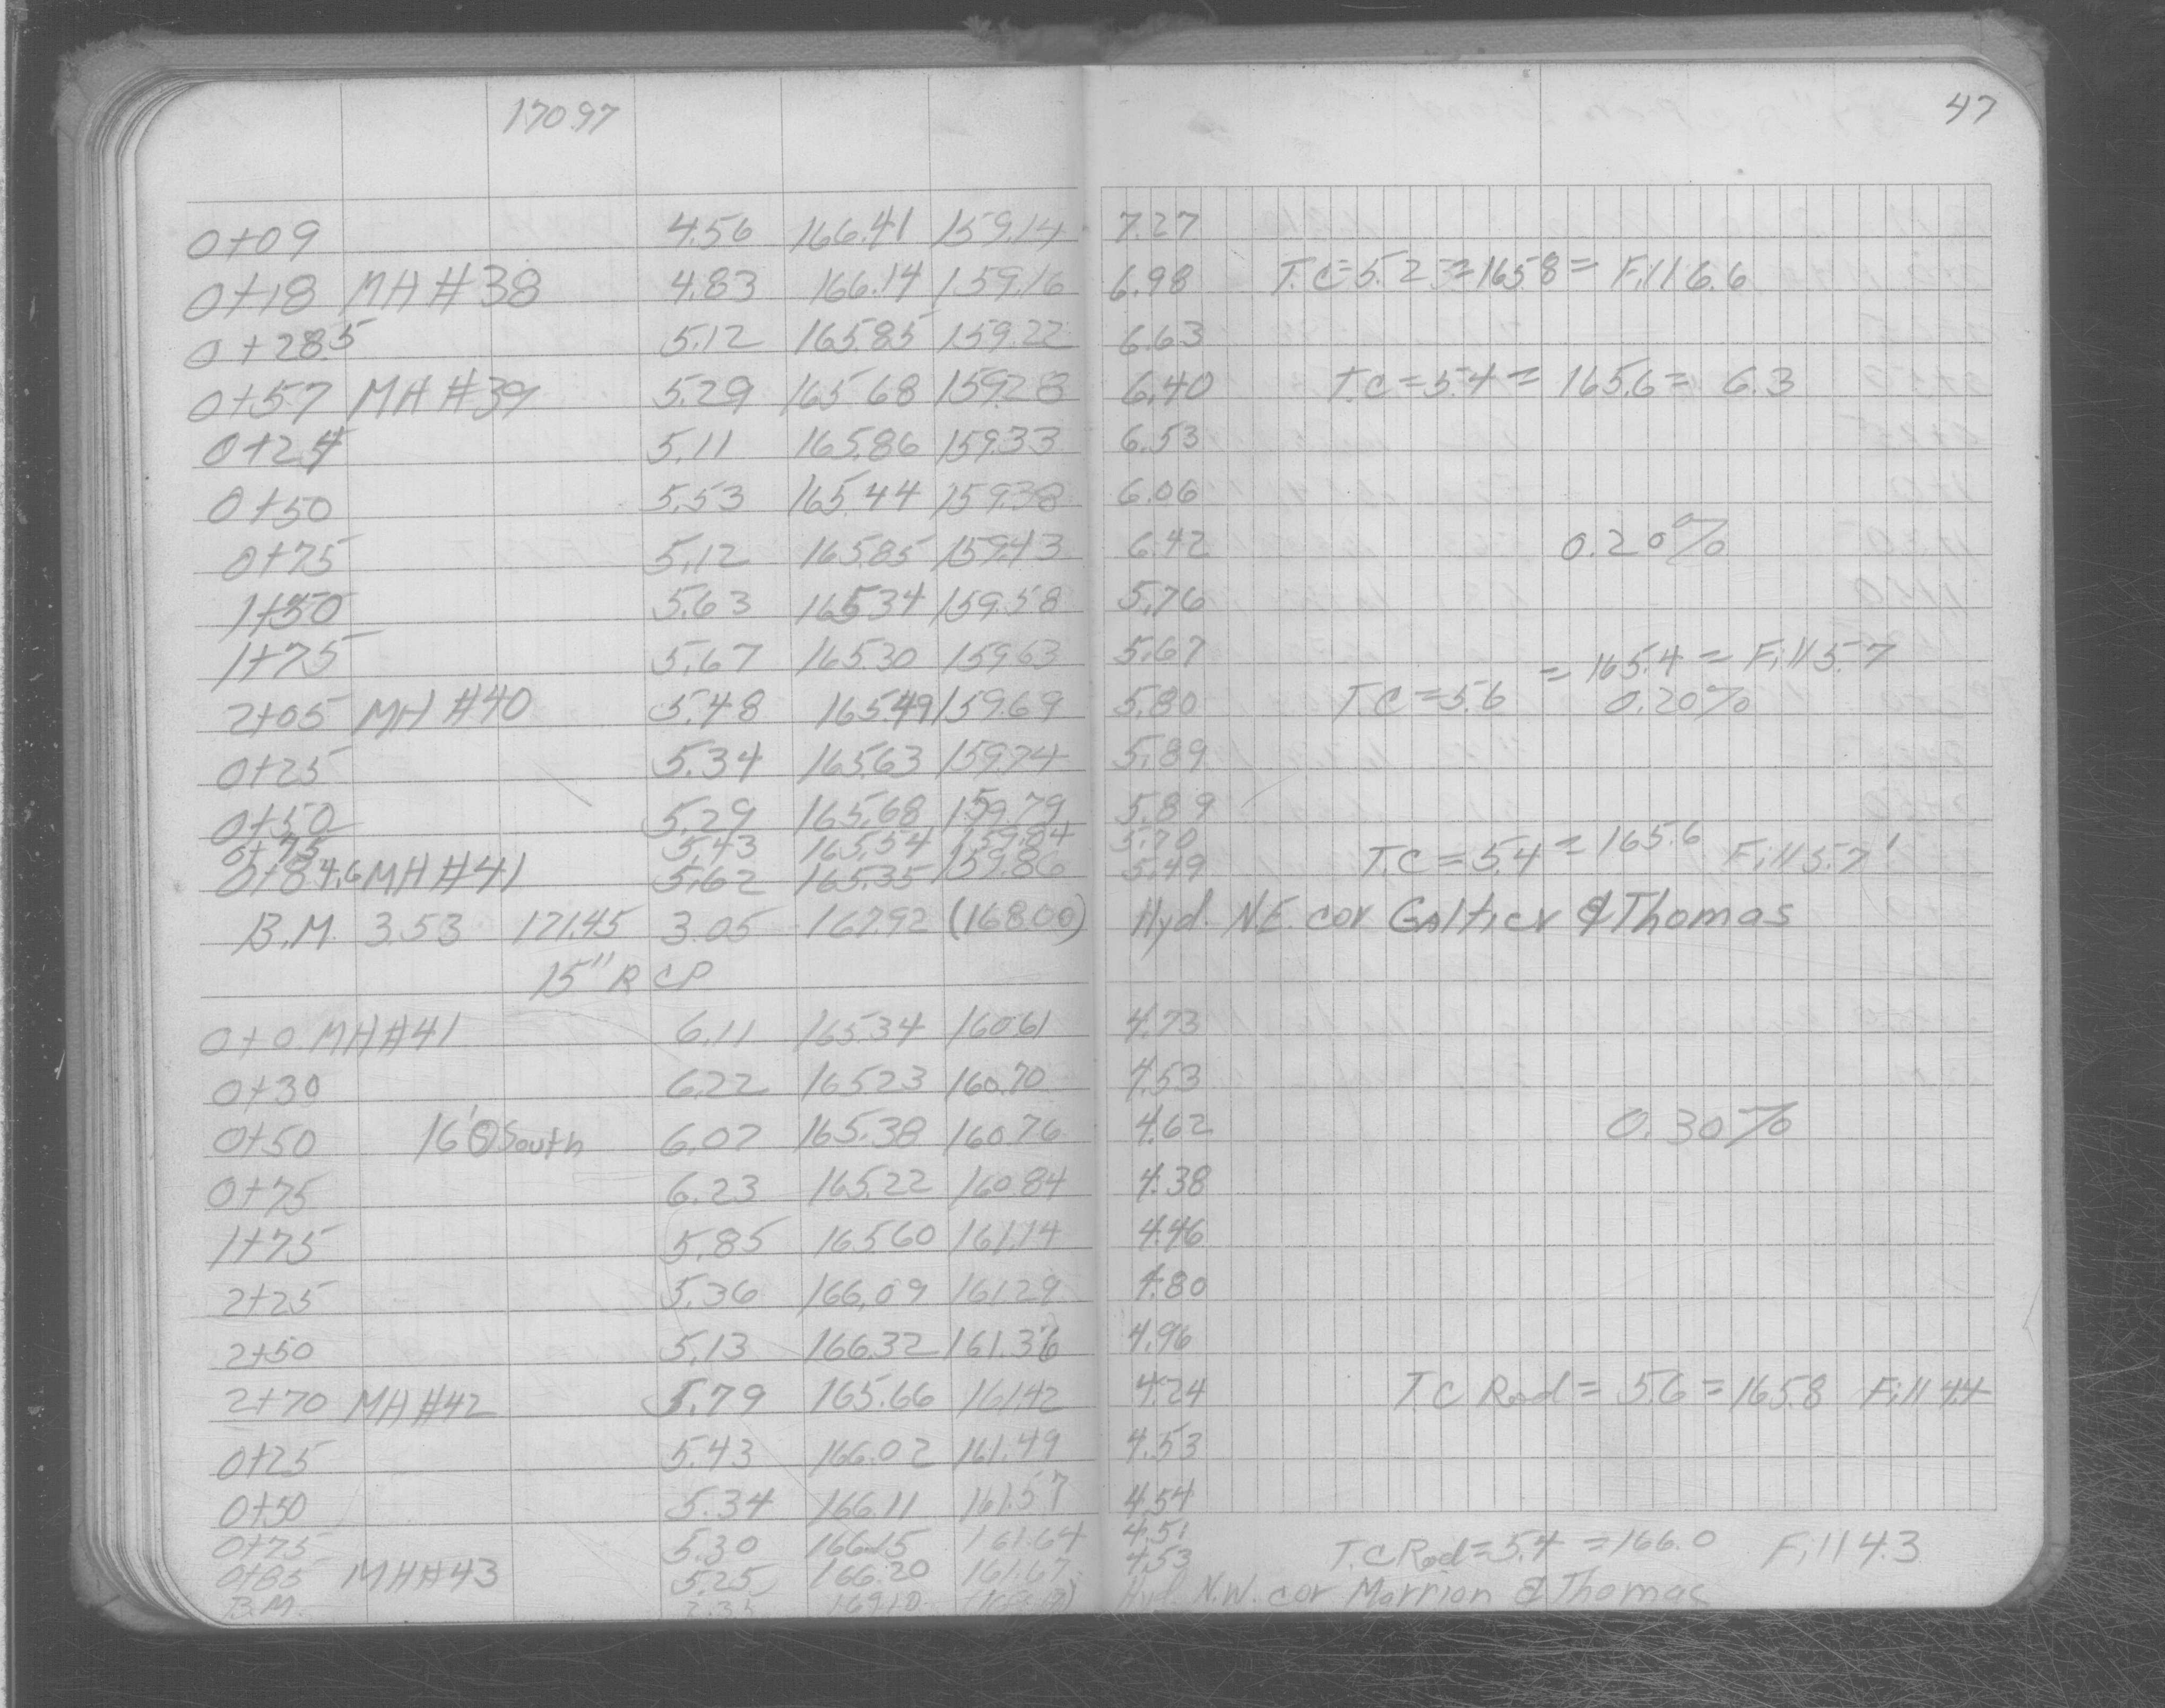 170.97 47
0+09 4.56 166.41 159.14 7.27
0+18 MH #38 4.83 166.14 159.16 6.98 T.C=5.23=165.8= Fill 6.6
0+28.5 5.12 165.85 159.22 6.63
0+57 MH #39 5.29 165.68 159.28 6.40 T.C=5.4= 165.6= 6.3
0+24 5.11 165.86 159.33 6.53
0+50 5.53 165.44 159.38 6.06
0+75 5.12 165.85 159.43 6.42 0.20%
1+50 5.63 165.34 159.58 5.76
1+75 5.67 165.30 159.63 5.67 = 165.4 = Fill 5.7
2+05 MH #40 5.48 165.49 159.69 5.80 T.C=5.6 0.20%
0+25 5.34 165.63 159.74 5.89
0+50 5.29 165.68 159.79 5.89
0+75 5.43 165.54 159.84 5.70
0+84.6 MH #41 5.62 165.35 159.86 5.49 T.C=5.4=165.6 Fill 5.7'
B.M. 3.53 171.45 3.05 167.92 (168.00) Hyd. N.E. cor Galtier & Thomas
15" RCP
0+0 MH #41 6.11 165.34 160.61 4.73
0+30 6.22 165.23 160.70 4.53
0+50 16' South 6.07 165.38 160.76 4.62 0.30%
0+75 6.23 165.22 160.84 4.38
1+75 5.85 165.60 161.14 4.46
2+25 5.36 166.09 161.29 4.80
2+50 5.13 166.32 161.36 4.96
2+70 MH #42 5.79 165.66 161.42 4.24 T.C Rod= 5.6=165.8 Fill 4.4
0+25 5.43 166.02 161.49 4.53
0+50 5.34 166.11 161.57 4.54
0+75 5.30 166.15 161.64 4.51
0+85 MH #43 5.25 166.20 161.67 4.53 T.C Rod=5.4 =166.0 Fill 4.3
B.M. 169.10 Hyd. N.W. cor Marrion & Thomas